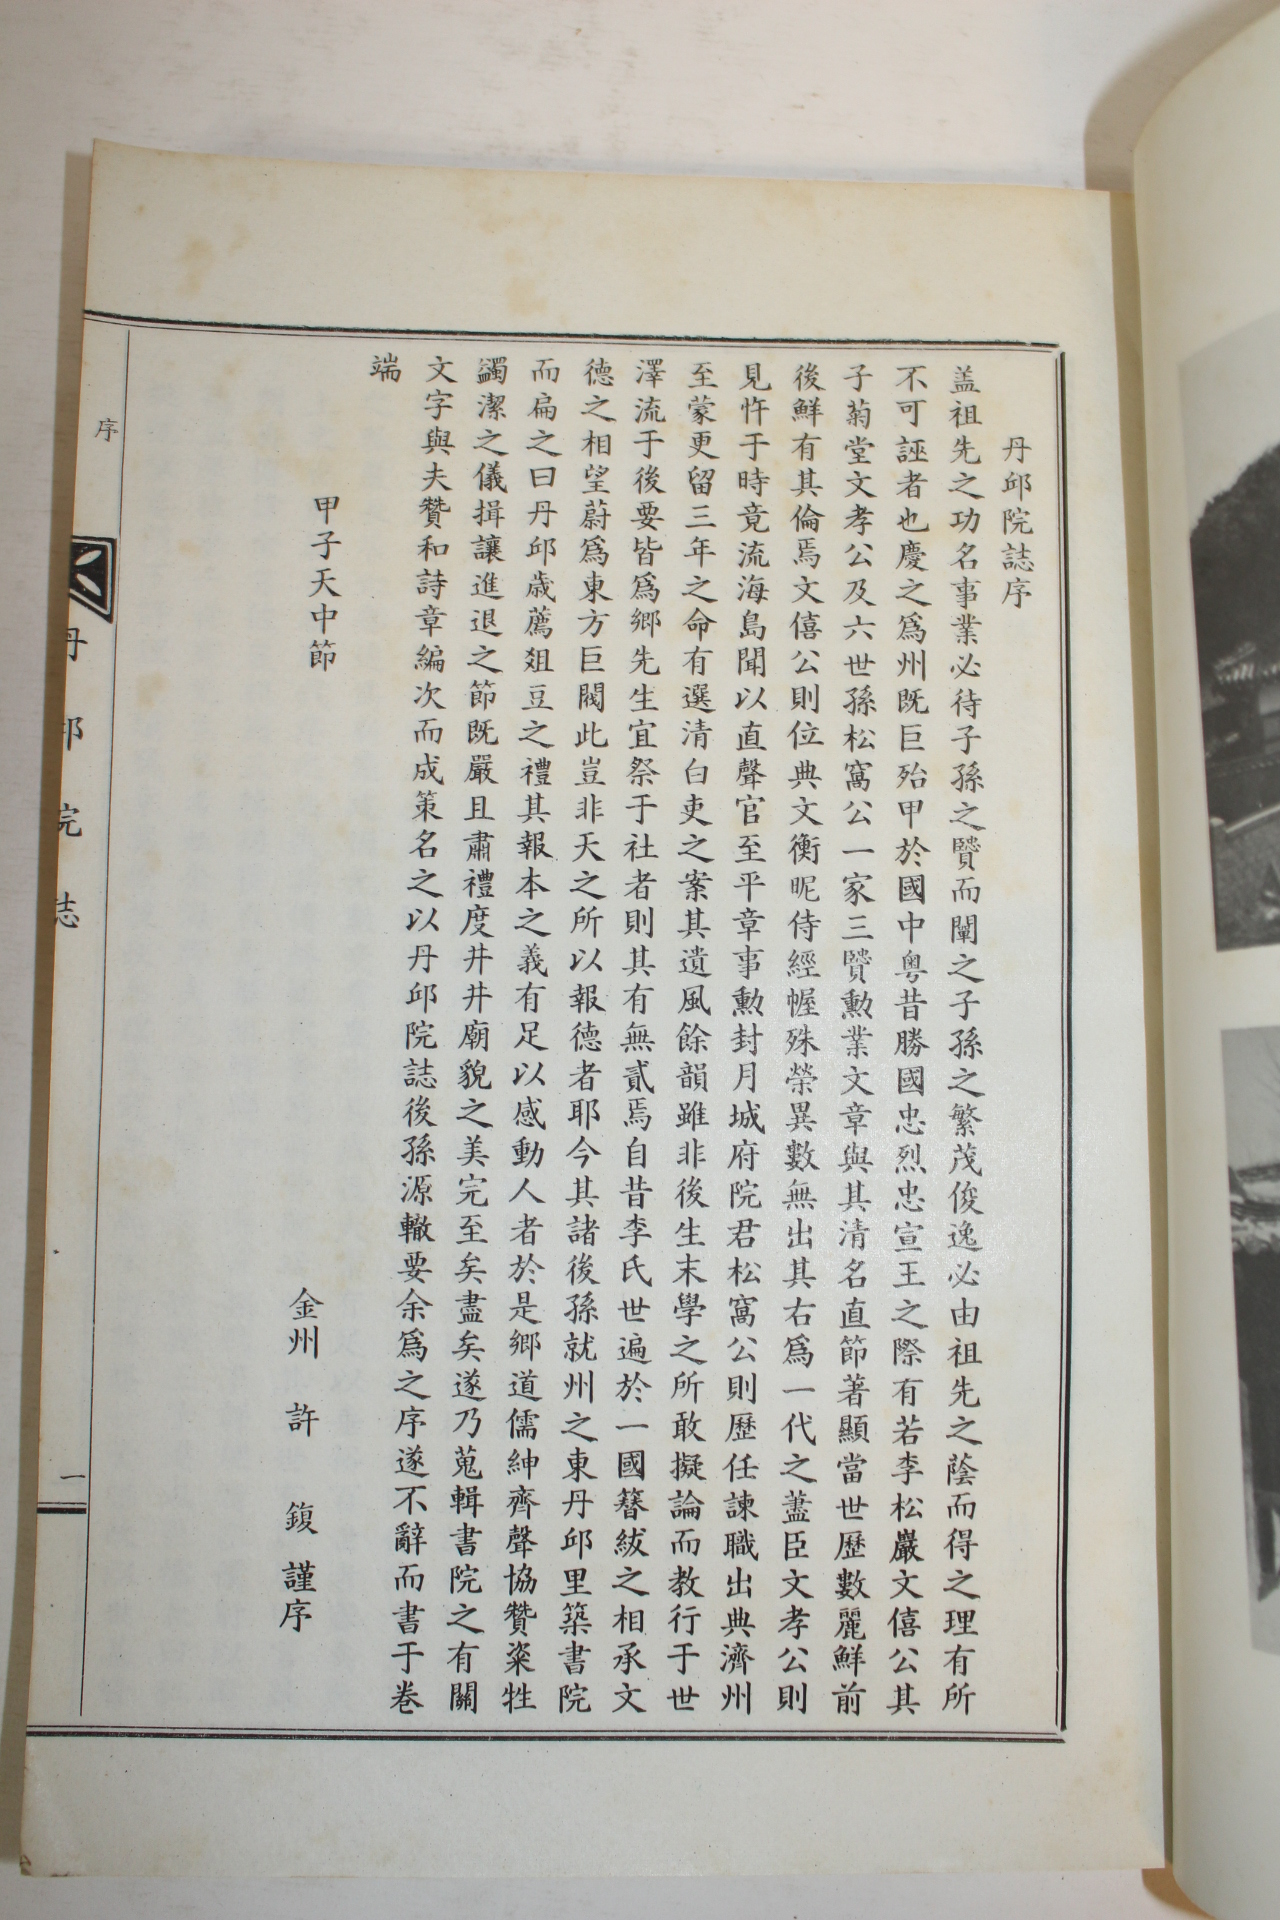 丹邱院誌序
盖祖先之功名事業必待子孫之賢而闡之子孫之繁茂俊逸必由祖先之蔭而得之理有所
不可誣者也慶之爲州既巨殆甲於國中粤昔勝國忠烈忠宣王之際有若李松巖文僖公其
子菊堂文孝公及六世孫松窩公一家三賢勳業文章與其清名直節著顯當世歷數麗鮮前
後鮮有其倫焉文僖公則位典文衡昵侍經幄殊榮異數無出其右爲一代之藎臣文孝公則
見忤于時竟流海島聞以直聲官至平章事勳封月城府院君松窩公則歷任諫職出典濟州
至蒙更留三年之命有選清白吏之案其遺風餘韻雖非後生末學之所敢擬論而教行于世
澤流于後要皆爲鄉先生宜祭于社者則其有無貳焉自昔李氏世遍於一國簪紱之相承文
德之相望蔚爲東方巨閥此豈非天之所以報德者耶今其諸後孫就州之東丹邱里築書院
而扁之曰丹邱歲薦俎豆之禮其報本之義有足以感動人者於是鄉道儒紳齊聲協贊粢牲
蠲潔之儀揖讓進退之節既嚴且肅禮度井井廟貌之美完至矣盡矣遂乃蒐輯書院之有關
文字與夫贊和詩章編次而成策名之以丹邱院誌後孫源轍要余爲之序遂不辭而書于卷
端
甲子天中節
金州 許 鍑 謹序
序
丹邱院誌
一